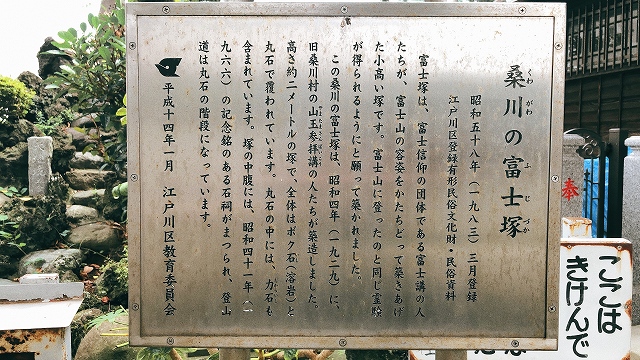 桑川の富士塚
くわ がわ ふ じ づか
昭和五十八年(一九八三)三月登録
江戸川区登録有形民俗文化財・民俗資料
富士塚は、富士信仰の団体である富士講の人
たちが、富士山の容姿をかたちどって築きあげ
た小高い塚です。富士山に登ったのと同じ霊験
が得られるようにと願って築かれました。
この桑川の富士塚は、昭和四年(一九二九)に、
旧桑川村の山玉参拝講の人たちが築造しました。
高さ約二メートルの塚で、全体はボク石(溶岩)と
丸石で覆われています。丸石の中には、力石も
含まれています。塚の中腹には、昭和四十一年(一
九六六)の記念銘のある石祠がまつられ、登山
道は丸石の階段になっています。
平成十四年一月 江戸川区教育委員会
奉
ここは
きけんで